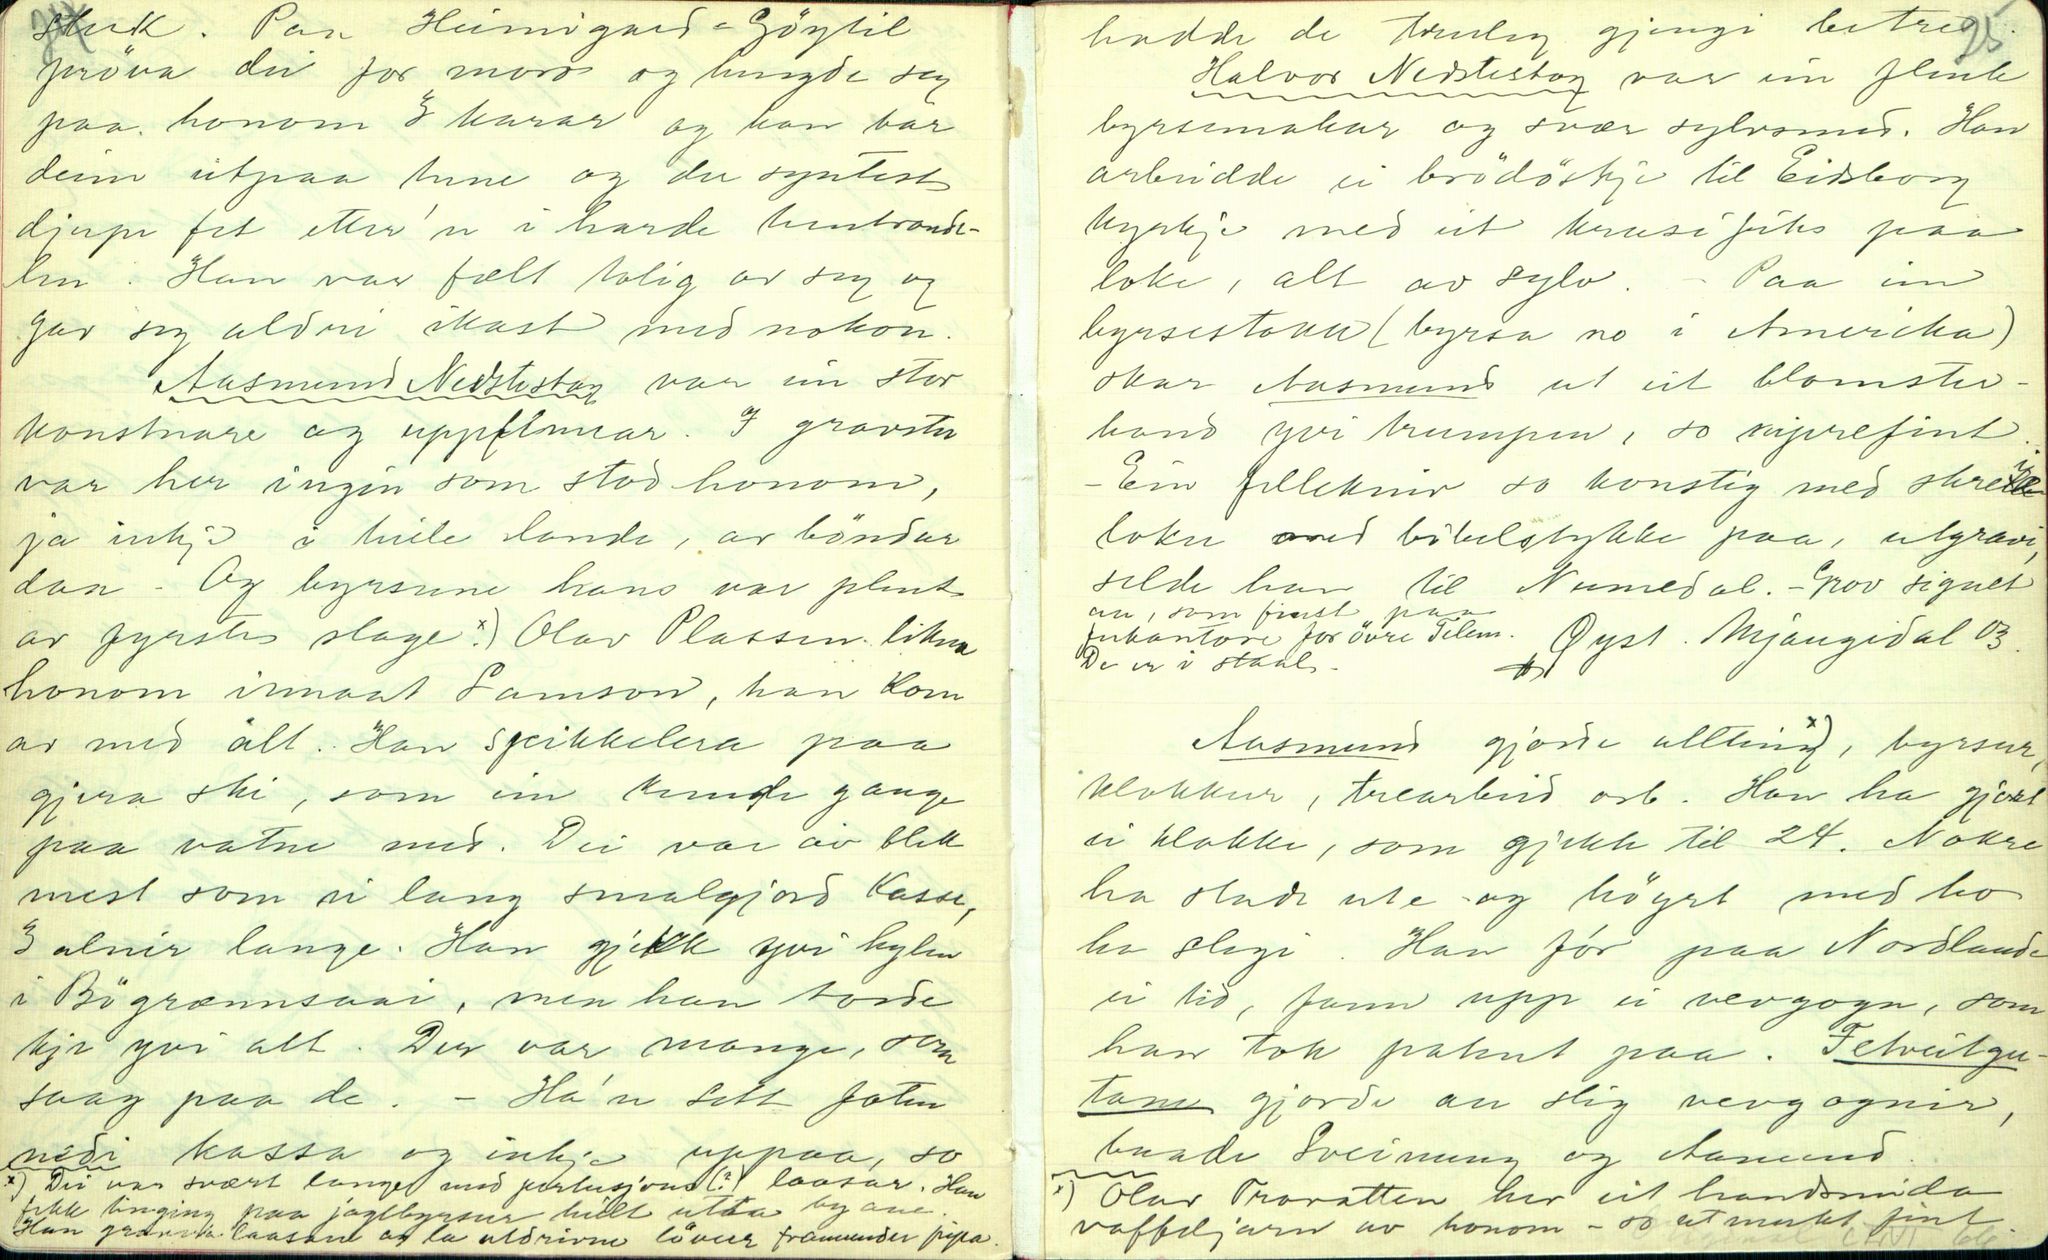 sterk. Paa Heimigard-Göytil
pröva dei for moro og hengde seg
paa honom 3 karar og han bar
deim utpaa tune og der syntest
djupe fet etter'n i harde tunbrande-
len. Han var fælt tolig av seg og
gav seg aldri ikast med nokon.
Aasmund Nedstestog var ein stor
konstnare og uppfinnar. I gravster
var her ingin som stod honom,
ja inkje i heile lande, av böndar
daa - Og byrsune hans var plent
av fyrste slage x) Olav Plassen likna
honom innaat Samson, han kom
av med alt. Han spikkelera paa
gjera ski, som ein kunde gange
paa vatne med. Dei var av blek
mest som ei lang smalgjord kasse,
3 alnir lange. Han gjekk yvi hylen
i Bögrænnsaai, men han torde
kje yvi alt. Der var mange, som
saag paa de. - Ha'n sett foten
nedi kassa og inkje uppaa, so
x) Dei var svært lange med perkusjons(?) laasar. Han
fekk tinging paa jagtbyrsur heilt utaa byane.
Han gravera laasane og la utdrivne löver framunder pipa.
25
hadde de truleg gjengi betre.
Halvor Nedstestog var ein flink
byrsemakar og svær sylvsmed. Han
arbeidde ei brödöskje til Eidsborg
kyrkje med eit krusifiks paa
loke, alt av sylv. - Paa ein
byrsestokk (byrsa no i Amerika)
skar Aasmund ut eit blomster-
band yvi krumpen, so ovjerefint.
- Ein fellekniv so konstig med skrei
loku med bibelstykke paa, utgravi,
selde han til Numedal. - Grov signet
au, som finst paa
futkontore for övre Telem.
De er i staal. -
Öyst. Mjaugidal 03.
Aasmund gjorde allting x), byrsur,
klokkur, trearbeid osb. Han ha gjort
ei klokke, som gjekk til 24. Nokre
ha stade ute og höyrt med ho
ha slegi. Han fór paa Nordlande
ei tid, fann upp ei vevgogn, som
han tok patent paa. Felveitgu-
tane gjorde au slig vevgognir,
baade Sveinung og Aamund.
x) Olav Trovatten her eit handsmida
vaffeljarn av honom - so utmerkt fint.